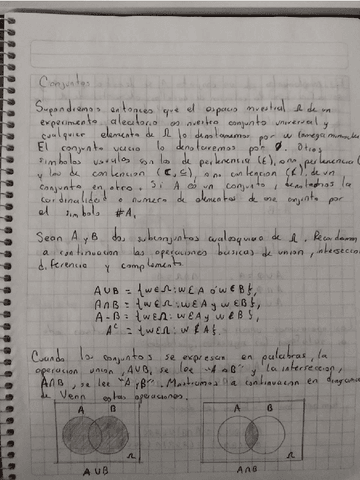 Conjuntos
Supondremos entonces que el espacio muestral Ω de un
experimento aleatorio es nuestro conjunto universal y
cualquier elemento de Ω lo denotaremos por ω (omega minuscula).
El conjunto vacio lo denotaremos por Ø. Otros
simbolos usuales son los de pertenencia (∈), o no pertenencia (
y los de contencion (⊂, ⊆), o no contencion (⊄), de un
conjunto en otro. Si A es un conjunto, denotamos la
cardinalidad o numero de elementos de ese conjunto por
el simbolo #A.
Sean A y B dos subconjuntos cualesquiera de Ω. Recordamos
a continuacion las operaciones basicas de union, interseccion
diferencia y complemento
A∪B = {ω∈Ω: ω∈A ó ω∈B},
A∩B = {ω∈Ω: ω∈A y ω∈B},
A-B = {ω∈Ω: ω∈A y ω∉B},
Aᶜ = {ω∈Ω: ω∉A}.
Cuando los conjuntos se expresan en palabras, la
operacion union, A∪B, se lee "A o B" y la interseccion,
A∩B, se lee "A y B". Mostramos a continuacion en diagramas
de Venn estas operaciones.
A B A B
Ω Ω
A∪B A∩B